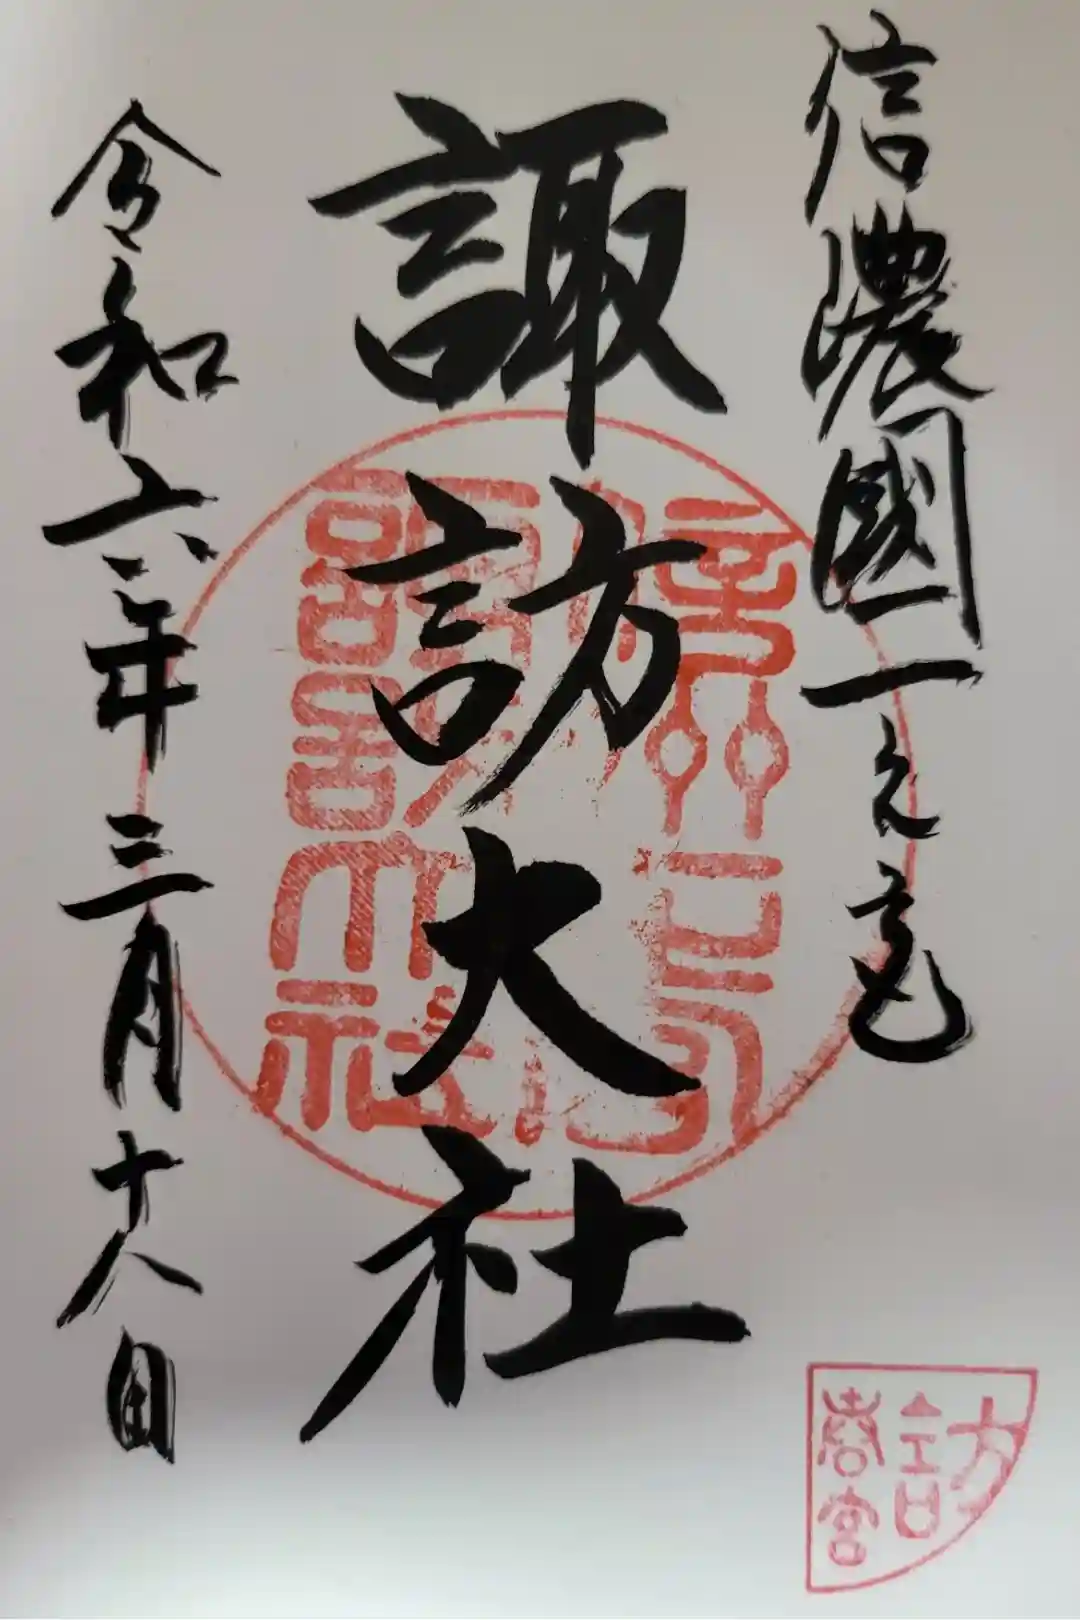 信濃國一之宮
諏訪大社
令和六年三月十八日
訪
春宮